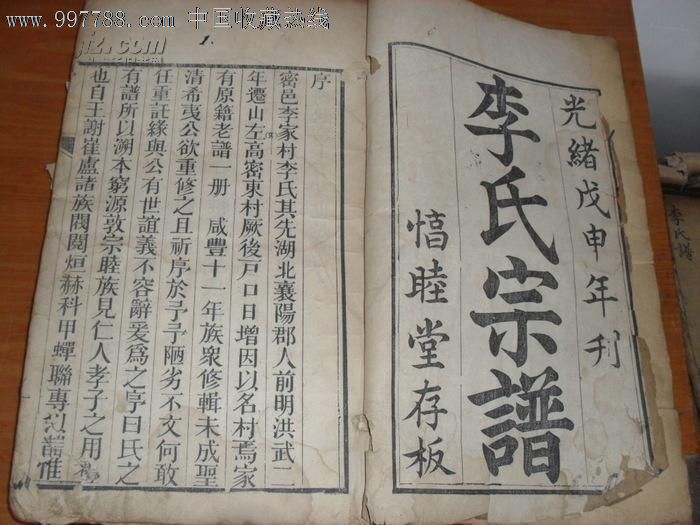 www.997788.com 中国收藏热线
jiz.com
1.
光緒戊申年刋
李氏宗譜
惇睦堂存板
序
密邑李家村李氏其先湖北襄陽郡人前明洪武二
年遷山左高密東村厥後戸口日增因以名村焉家
有原籍老譜一册 咸豐十一年族衆修輯未成聖
清希夷公欲重修之且祈序於予予陋劣不文何敢
任重託緣與公有世誼義不容辭爰爲之序曰氏之
有譜所以溯本窮源敦宗睦族見仁人孝子之用
也自王謝崔盧諸族閥閱烜赫科甲蟬聯專以 惟
李氏譜